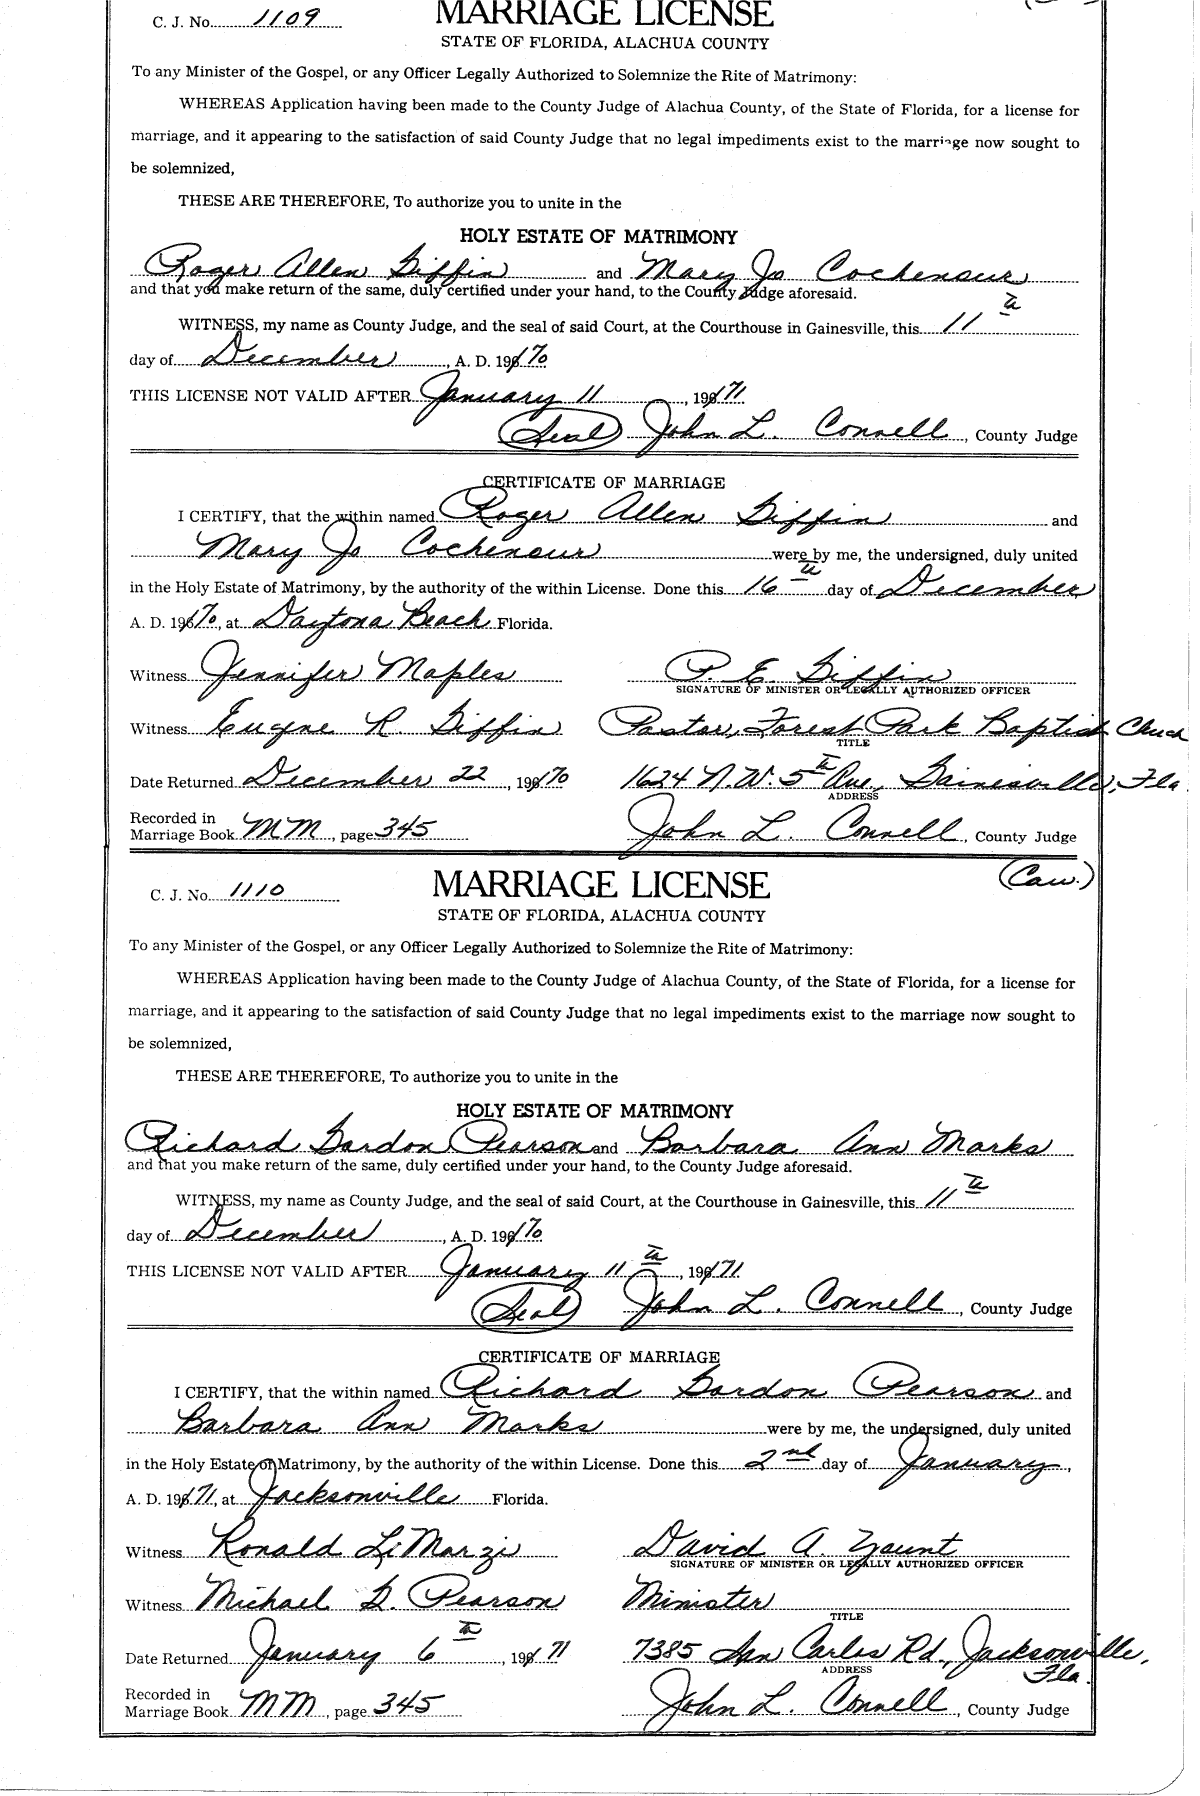 C. J. No. 1109
MARRIAGE LICENSE
STATE OF FLORIDA, ALACHUA COUNTY
To any Minister of the Gospel, or any Officer Legally Authorized to Solemnize the Rite of Matrimony:
WHEREAS Application having been made to the County Judge of Alachua County, of the State of Florida, for a license for
marriage, and it appearing to the satisfaction of said County Judge that no legal impediments exist to the marriage now sought to
be solemnized,
THESE ARE THEREFORE, To authorize you to unite in the
HOLY ESTATE OF MATRIMONY
Roger Allen Giffin and Mary Jo Cochenour
and that you make return of the same, duly certified under your hand, to the County Judge aforesaid.
WITNESS, my name as County Judge, and the seal of said Court, at the Courthouse in Gainesville, this 11th
day of December, A. D. 1970
THIS LICENSE NOT VALID AFTER January 11, 1971
(Seal) John L. Connell, County Judge
CERTIFICATE OF MARRIAGE
I CERTIFY, that the within named Roger Allen Giffin and
Mary Jo Cochenour were by me, the undersigned, duly united
in the Holy Estate of Matrimony, by the authority of the within License. Done this 16th day of December
A. D. 1970, at Daytona Beach Florida.
Witness Jennifer Maples P. E. Giffin
SIGNATURE OF MINISTER OR LEGALLY AUTHORIZED OFFICER
Witness Eugene R. Giffin Pastor, Forest Park Baptist Church
TITLE
Date Returned December 22, 1970 1624 N.W. 5th Ave., Gainesville, Fla
ADDRESS
Recorded in
Marriage Book MM, page 345 John L. Connell, County Judge
C. J. No. 1110
MARRIAGE LICENSE
(Cau.)
STATE OF FLORIDA, ALACHUA COUNTY
To any Minister of the Gospel, or any Officer Legally Authorized to Solemnize the Rite of Matrimony:
WHEREAS Application having been made to the County Judge of Alachua County, of the State of Florida, for a license for
marriage, and it appearing to the satisfaction of said County Judge that no legal impediments exist to the marriage now sought to
be solemnized,
THESE ARE THEREFORE, To authorize you to unite in the
HOLY ESTATE OF MATRIMONY
Richard Gordon Pearson and Barbara Ann Marks
and that you make return of the same, duly certified under your hand, to the County Judge aforesaid.
WITNESS, my name as County Judge, and the seal of said Court, at the Courthouse in Gainesville, this 11th
day of December, A. D. 1970
THIS LICENSE NOT VALID AFTER January 11th, 1971
(Seal) John L. Connell, County Judge
CERTIFICATE OF MARRIAGE
I CERTIFY, that the within named Richard Gordon Pearson and
Barbara Ann Marks were by me, the undersigned, duly united
in the Holy Estate of Matrimony, by the authority of the within License. Done this 2nd day of January,
A. D. 1971, at Jacksonville Florida.
Witness Ronald LiMarzi David A. Yount
SIGNATURE OF MINISTER OR LEGALLY AUTHORIZED OFFICER
Witness Michael G. Pearson Minister
TITLE
Date Returned January 6th, 1971 7385 San Carlos Rd., Jacksonville,
ADDRESS Fla.
Recorded in
Marriage Book MM, page 345 John L. Connell, County Judge